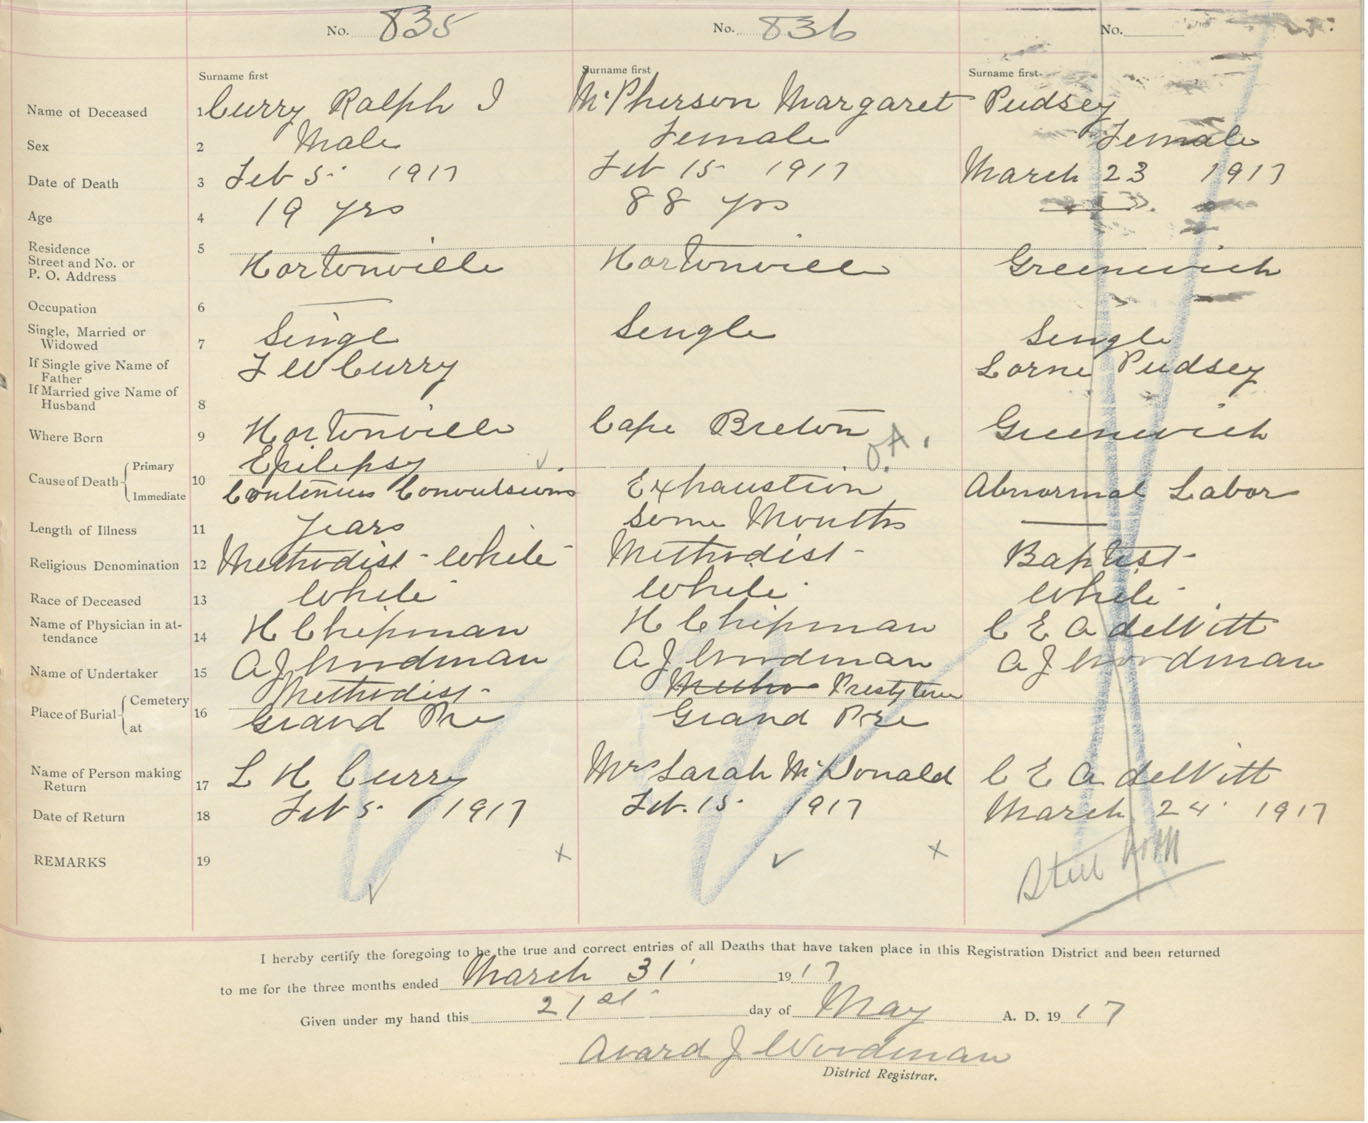 No. 835 No. 836 No.
Surname first Surname first Surname first
Name of Deceased 1 Curry Ralph I McPherson Margaret Pudsey
Sex 2 Male Female Female
Date of Death 3 Feb 5 1917 Feb 15 1917 March 23 1917
Age 4 19 yrs 88 yrs
Residence
Street and No. or
P. O. Address 5 Hortonville Hortonville Greenwich
Occupation 6
Single, Married or
Widowed 7 Singl Single Single
If Single give Name of
Father F W Curry Lorne Pudsey
If Married give Name of
Husband 8
Where Born 9 Hortonville Cape Breton Greenwich
O.A.
Cause of Death Primary Epilepsy
10 Immediate Continuus Convulsions Exhaustion Abnormal Labor
Length of Illness 11 years some Months
Religious Denomination 12 Methodist - White Methodist - Baptist -
Race of Deceased 13 White White White
Name of Physician in at-
tendance 14 H Chipman H Chipman C E A deWitt
Name of Undertaker 15 A J Woodman A J Woodman A J Woodman
Place of Burial Cemetery Methodist - Metho Presbyterian
at 16 Grand Pre Grand Pre
Name of Person making
Return 17 L H Curry Mrs Sarah McDonald C E A deWitt
Date of Return 18 Feb 5 1917 Feb. 15 1917 March 24 1917
REMARKS 19 Still born
I hereby certify the foregoing to be the true and correct entries of all Deaths that have taken place in this Registration District and been returned
to me for the three months ended March 31 1917
Given under my hand this 21st day of May A. D. 1917
Avard J Woodman
District Registrar.